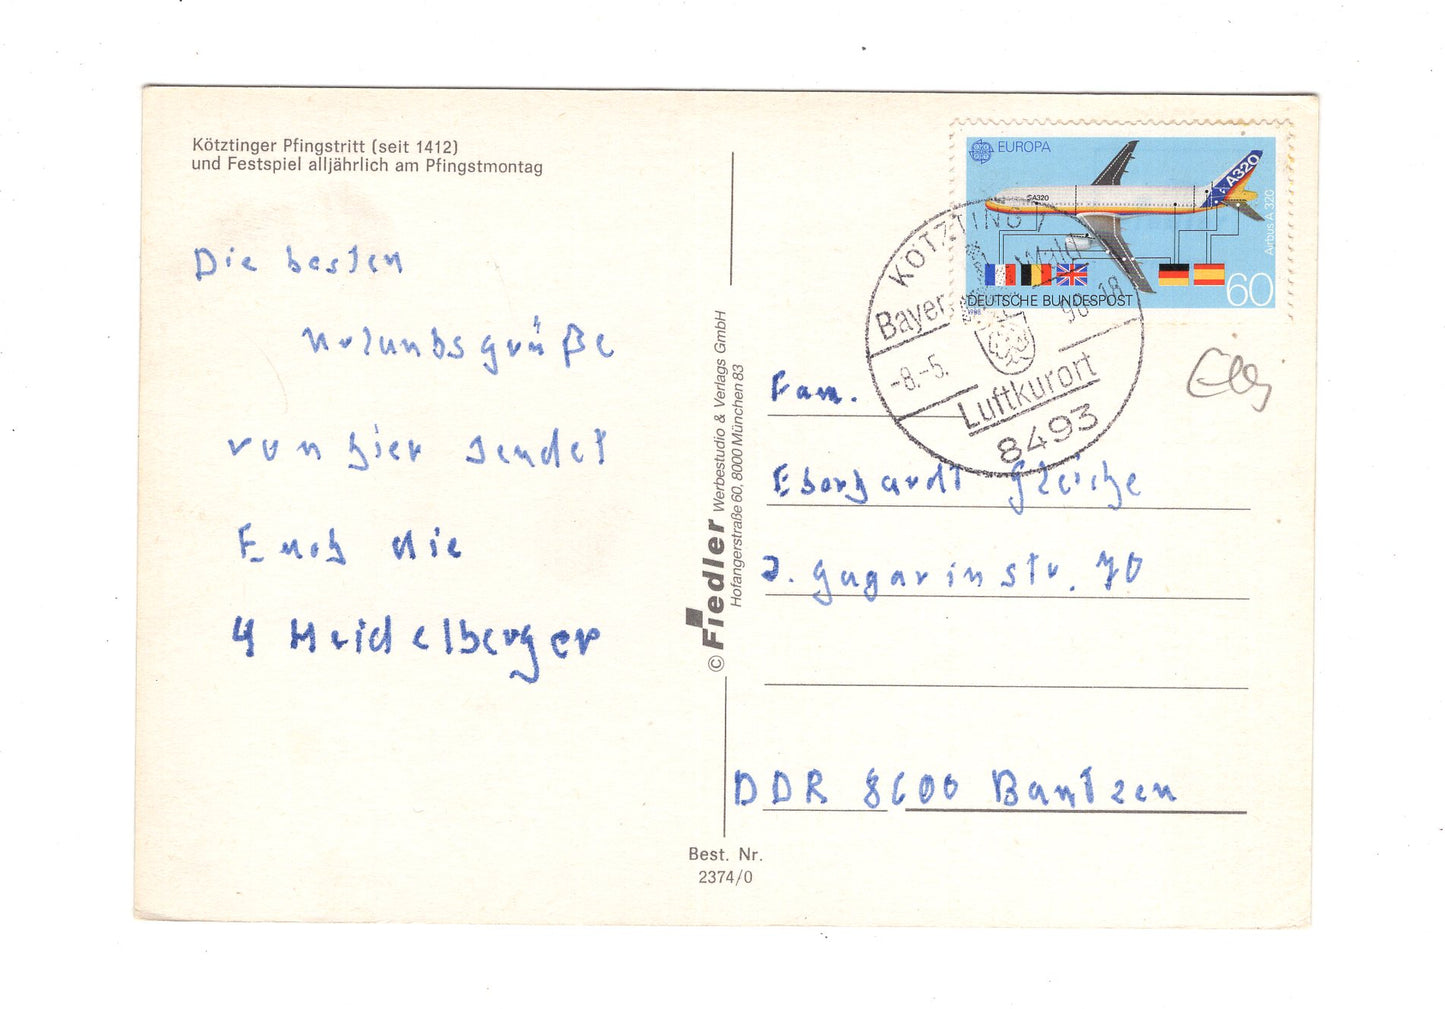 Kötztinger Pfingstritt (seit 1412)
und Festspiel alljährlich am Pfingstmontag
Die besten
Urlaubsgrüße
von hier sendet
Euch die
4 Heidelberger
© Fiedler Werbestudio & Verlags GmbH
Hofangerstraße 60, 8000 München 83
Best. Nr.
2374/0
EUROPA
A320
A320
Airbus A 320
DEUTSCHE BUNDESPOST
60
1988
KÖTZTING 1
Bayer. Wald
-8.-5. 90-18
Luftkurort
8493
Fam.
Eberhardt Gleiche
J. Gagarinstr. 70
DDR 8600 Bautzen